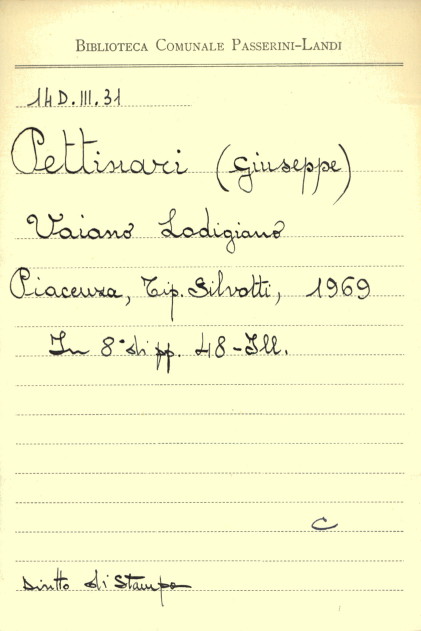 BIBLIOTECA COMUNALE PASSERINI-LANDI
14 D. III. 31
Pettinari (Giuseppe)
Vaiano Lodigiano
Piacenza, Tip. Silvotti, 1969
In 8° di pp. 48 - Ill.
C
Diritto di Stampa